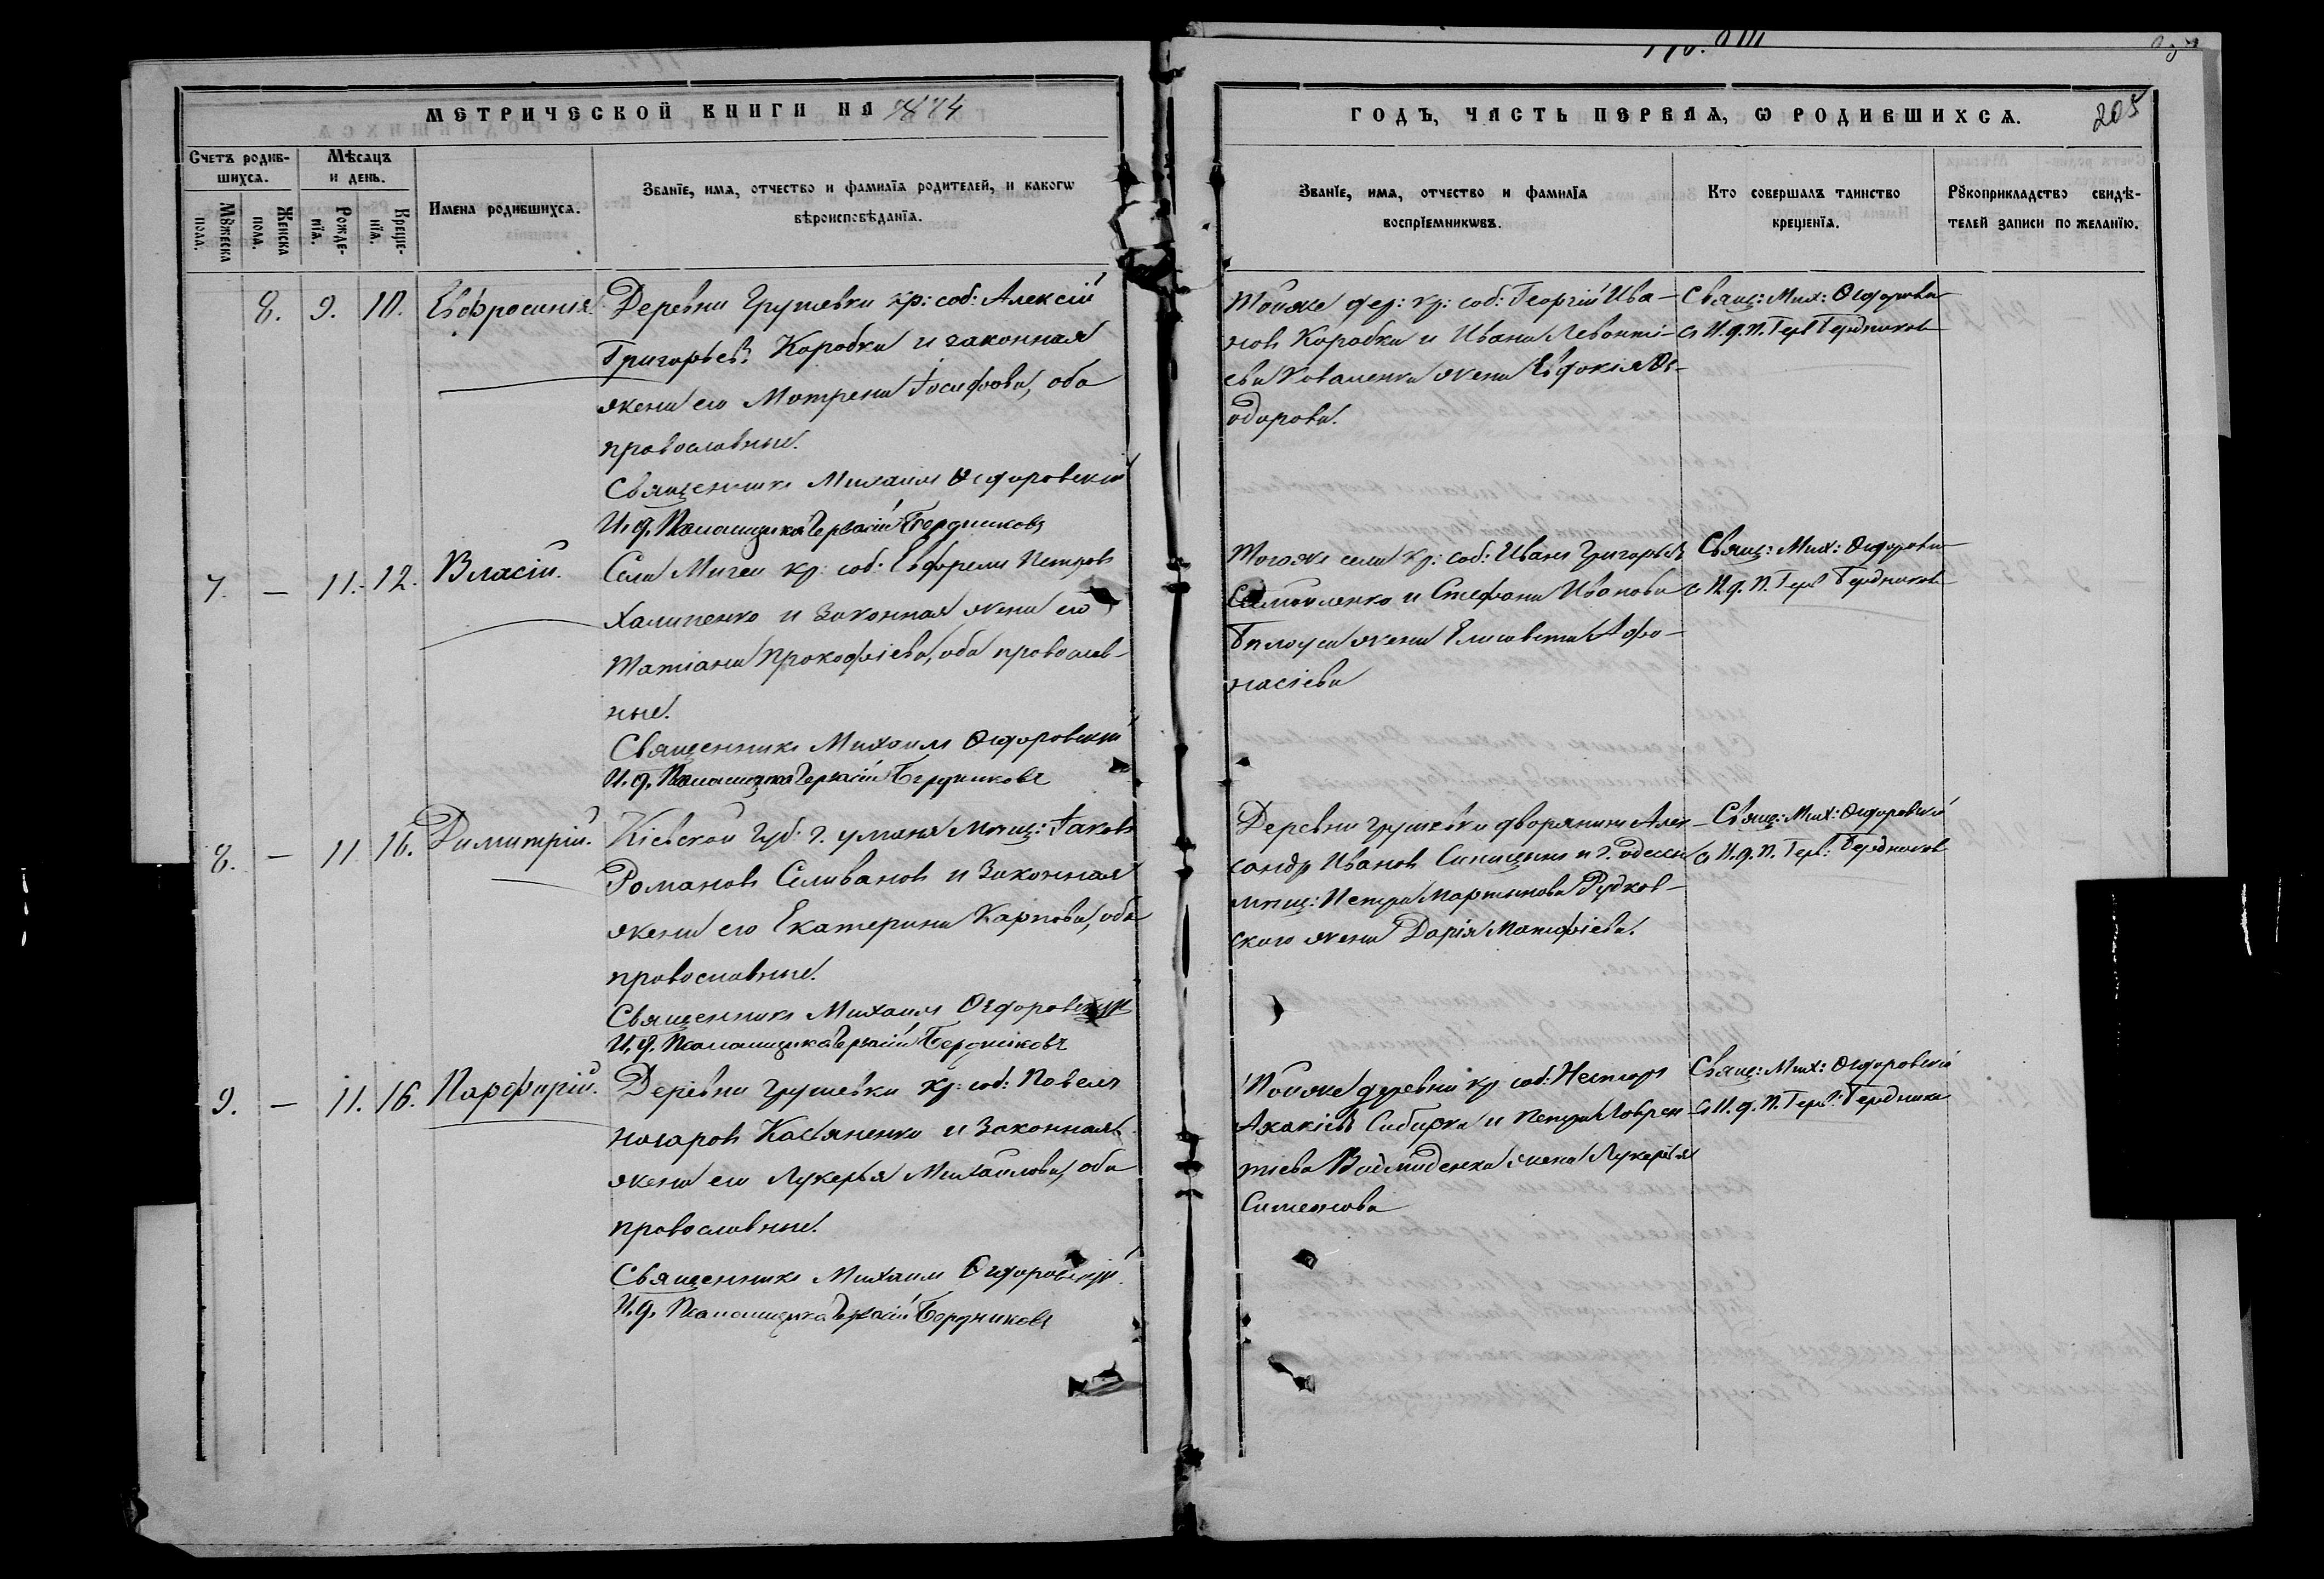 МЕТРИЧЕСКОЙ КНИГИ НА 1874
Счетъ родив-
шихся.
Мѣсяцъ
и день.
Мꙋжеска
пола.
Женска
пола.
Рожде-
нїя.
Креще-
нїя.
Имена родившихся.
Званїе, имя, отчество и фамилїя родителей, и какогѡ
вѣроисповѣданїя.
8. 9. 10. Евфросинія. Деревни Грушевки кр: соб: Алексій
Григорьевъ Коробка и законная
жена его Мотрена Іосифова, оба
православные.
Священникъ Михаилъ Ѳедоровскій
И. д. Псаломщика Гервасій Бердниковъ
7. — 11. 12. Власій. Села Мигеи кр: соб: Евфремъ Петровъ
Халипенко и Законная жена его
Татіана Прокофіева, оба православ-
ные.
Священникъ Михаилъ Ѳедоровскій
И. д. Псаломщика Гервасій Бердниковъ
8. — 11 16. Димитрій. Кіевской губ: г. Уманя мѣщ: Іаковъ
Романовъ Селивановъ и Законная
жена его Екатерина Карпова, оба
православные.
Священникъ Михаилъ Ѳедоровскій
И. д. Псаломщика Гервасій Бердниковъ
9. — 11. 16. Парфирій. Деревни Грушевки кр: соб: Павелъ
Касьяненко и Законная
жена его Лукерья Михайлова, оба
православные.
Священникъ Михаилъ Ѳедоровскій
И. д. Псаломщика Гервасій Бердниковъ
ГОДЪ, ЧАСТЬ ПЕРВАЯ, Ѡ РОДИВШИХСЯ.
205
Званїе, имя, отчество и фамилїя
воспрїемникѡвъ.
Кто совершалъ таинство
крещенїя.
Рꙋкоприкладство свидѣ-
телей записи по желанїю.
Тойже дер: кр: соб: Георгій Ива-
новъ Коробка и Ивана Левонті-
ева Коваленка жена Евдокія Ѳе-
одорова.
Свящ: Мих: Ѳедоровскій
съ И. д. П. Герв: Бердниковъ
Тогоже села кр: соб: Иванъ Григорьевъ
Самойленко и Стефана Иванова
Билоуса жена Елисавета Афа-
насіева
Свящ: Мих: Ѳедоровскій
съ И. д. П. Герв: Бердниковъ
Деревни Грушевки дворянинъ Алек-
сандръ Ивановъ Синицынъ и г. Одессы
мѣщ: Петра Мартынова Рудков-
скаго жена Дарія Матфіева.
Свящ: Мих: Ѳедоровскій
съ И. д. П. Герв: Бердниковъ
Тойже деревни кр: соб: Несторъ
Акакіевъ Сибирка и Петра Лаврен-
тіева жена Лукерья
Симеонова
Свящ: Мих: Ѳедоровскій
съ И. д. П. Герв: Бердниковъ